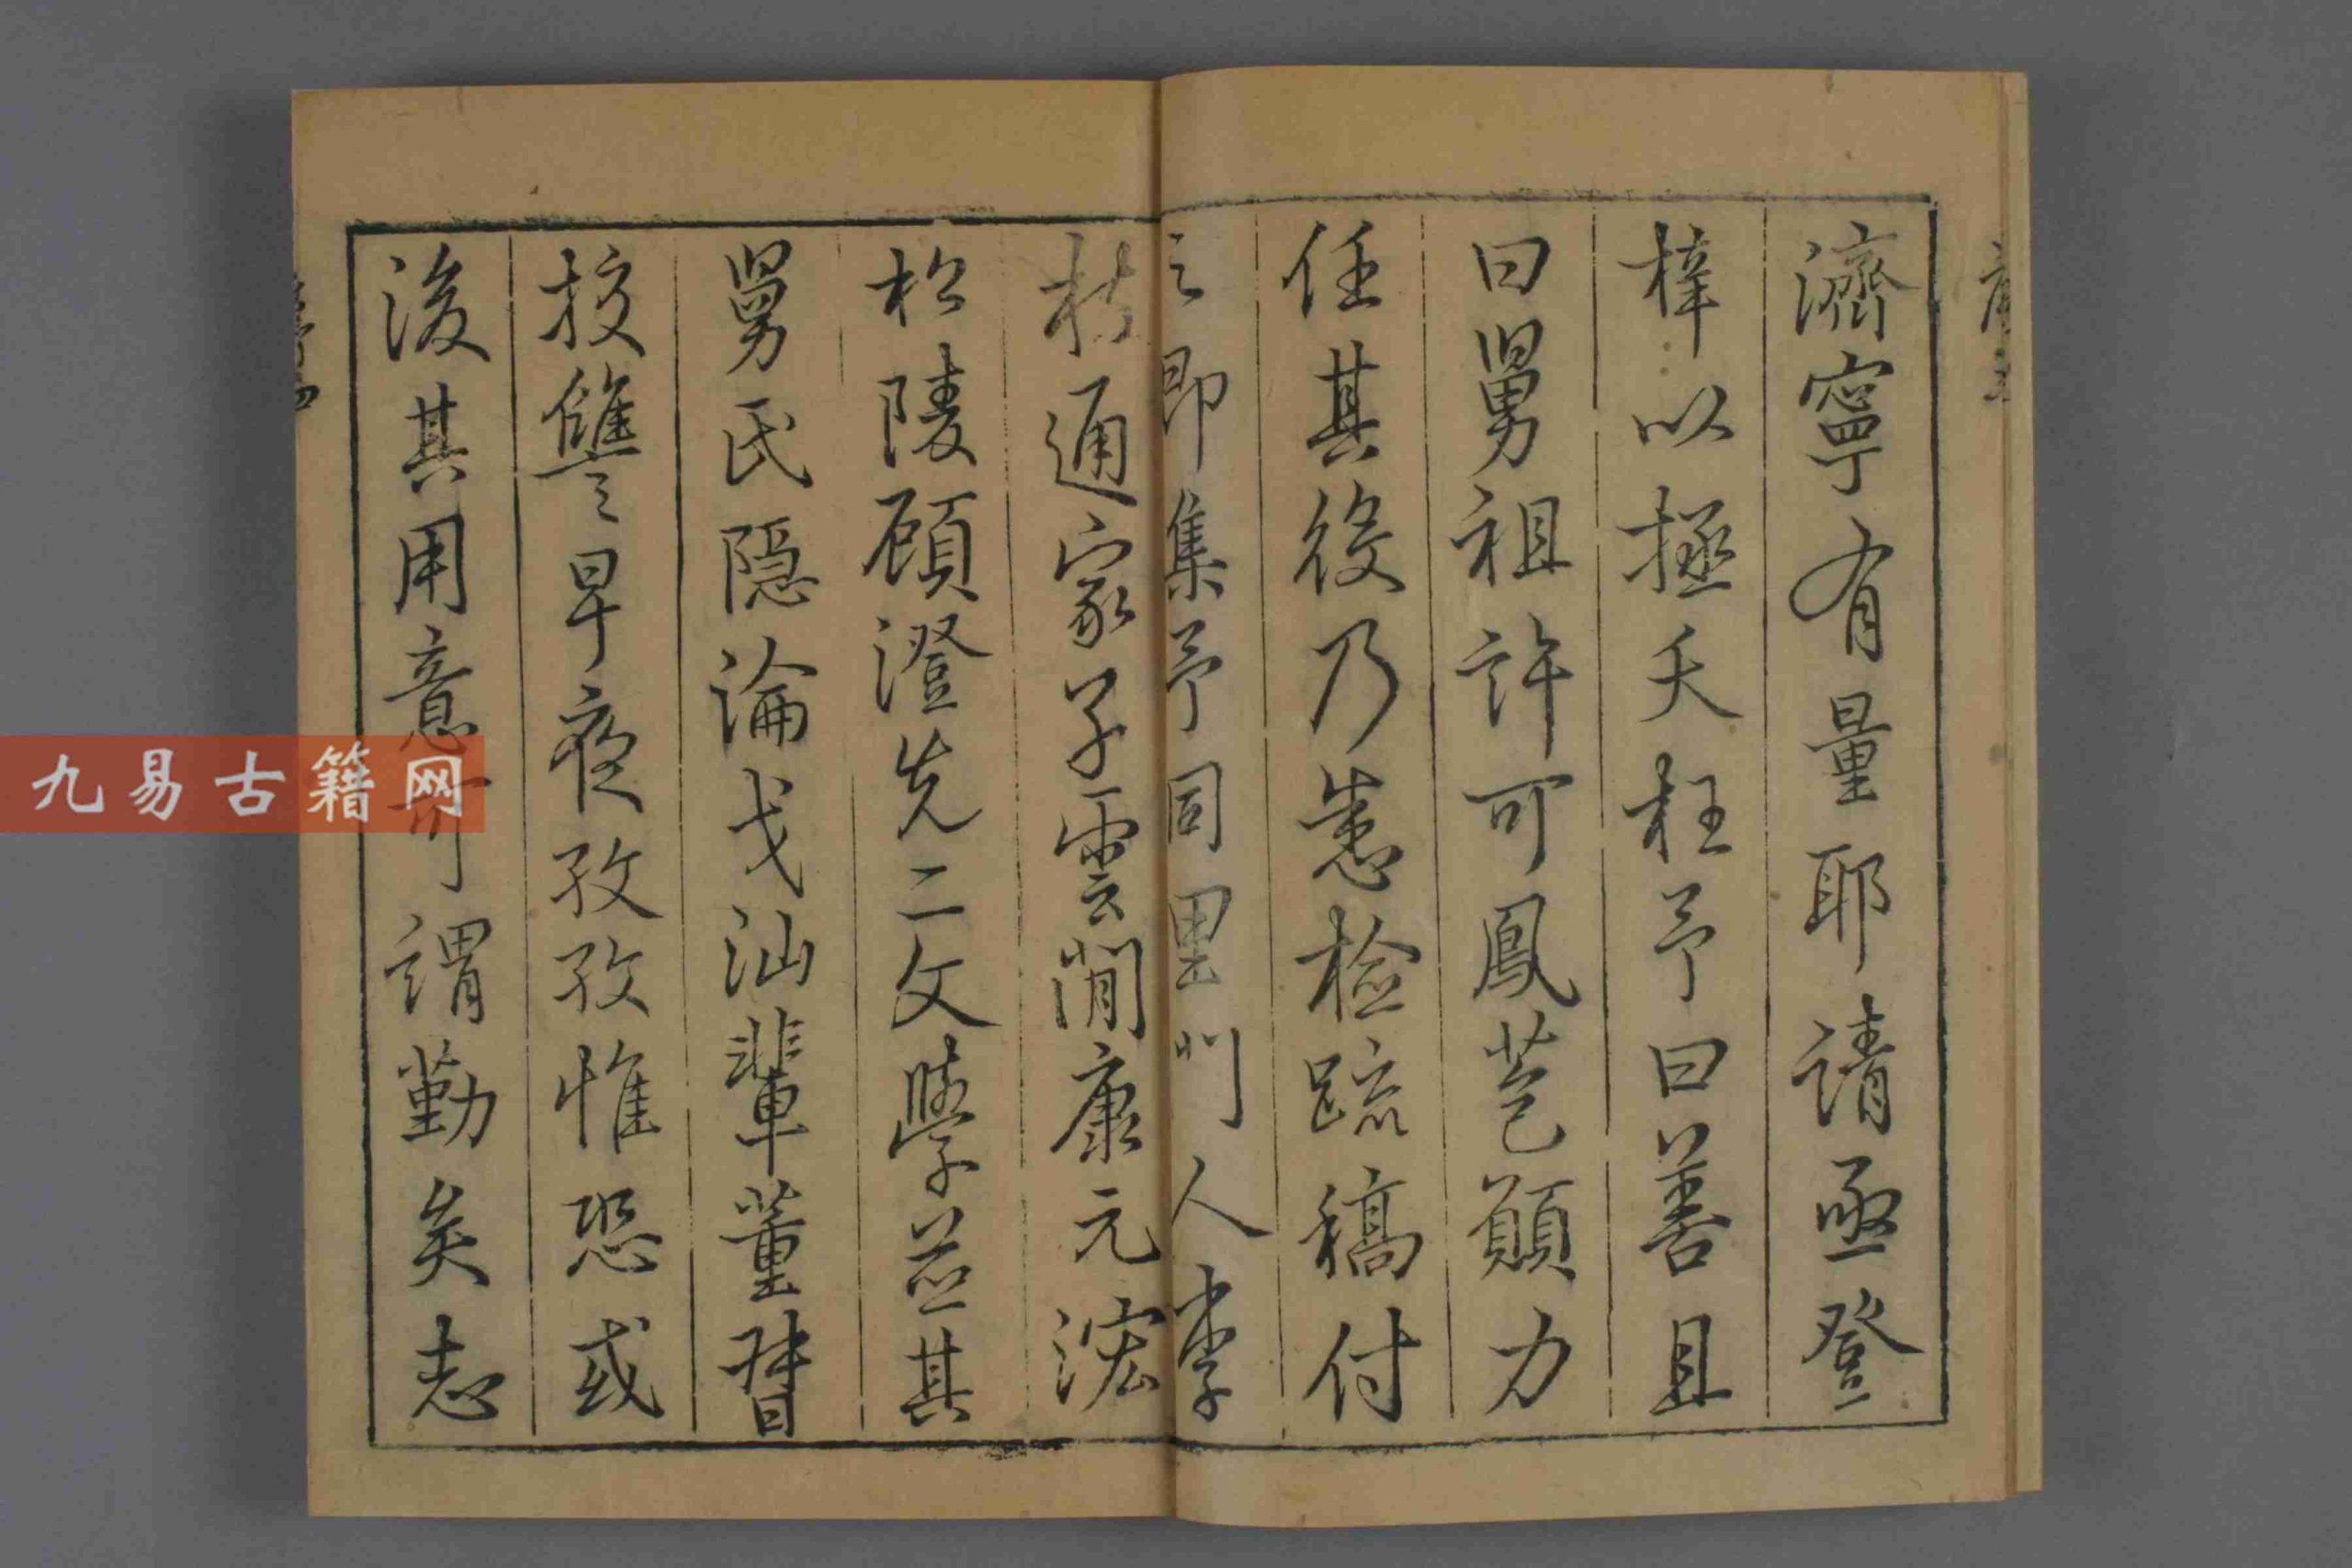 濟寧有量耶請亟登
梓以拯夭枉予曰善且
曰舅祖許可鳳芑願力
任其後乃悉檢疏稿付
之即集予同里門人李
枝通家子雲間康元浤
松陵顧澄先二文學並其
舅氏隱論戈汕輩董督
挍讐之早夜孜孜惟恐或
後其用意可謂勤矣志
九易古籍网